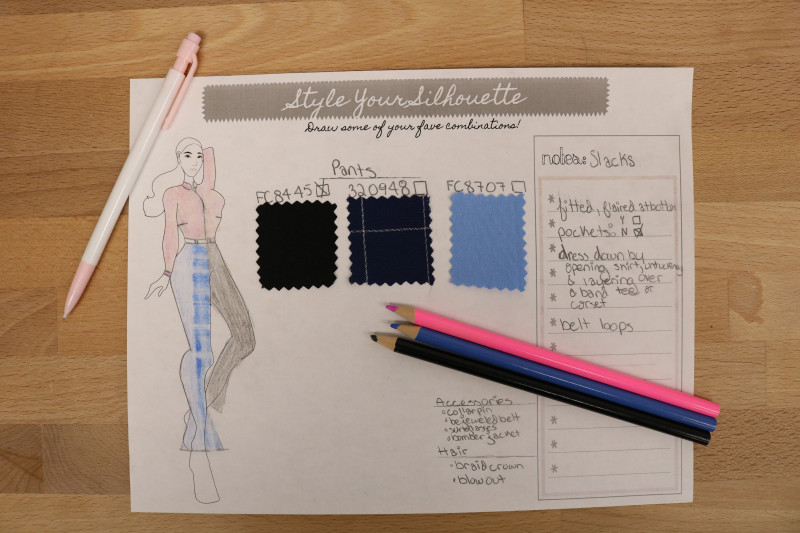 Style Your Silhouette
Draw some of your fave combinations!
Pants
FC8445
320948
FC8707
notes: Slacks
* fitted, flaired at bottom
* pockets: Y
N
* dress down by
opening shirt, untucking
* & layering over
* a band tee or
corset
* belt loops
*
*
*
*
Accessories
• collar pin
• bejeweled belt
• sunglasses
• bomber jacket
Hair
• braid crown
• blow out